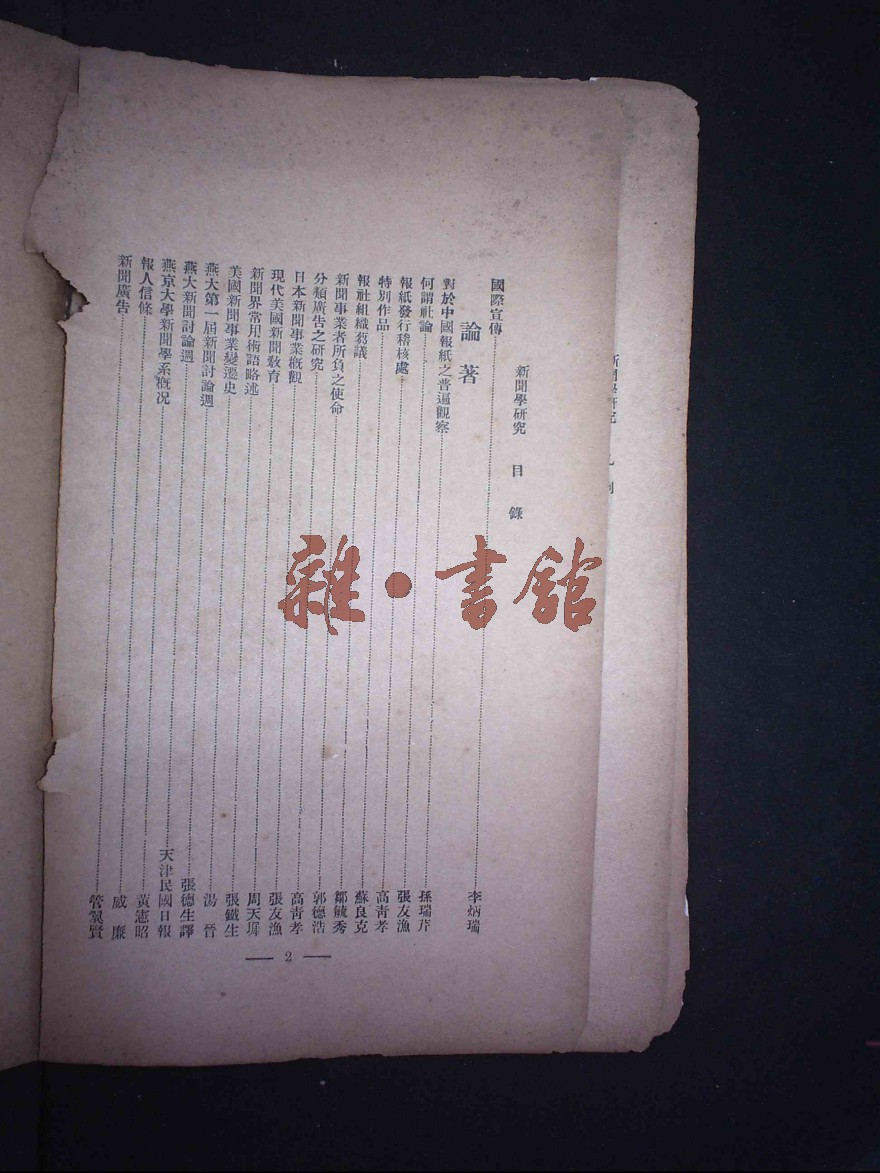 新聞學研究 目錄
國際宣傳 李炳瑞
論著
對於中國報紙之普遍觀察 孫瑞芹
何謂社論 張友漁
報紙發行稽核處 高青孝
特別作品 蘇良克
報社組織芻議 鄒毓秀
新聞事業者所負之使命 郭德浩
分類廣告之研究 高青孝
日本新聞事業概觀 張友漁
現代美國新聞教育 周天墀
新聞界常用術語略述 張鐵生
美國新聞事業變遷史 湯晉
燕大第一屆新聞討論週 張德生譯
燕大新聞討論週 天津民國日報
燕京大學新聞學系概况 黃憲昭
報人信條 威廉
新聞廣告 管翼賢
— 2 —
雜·書館